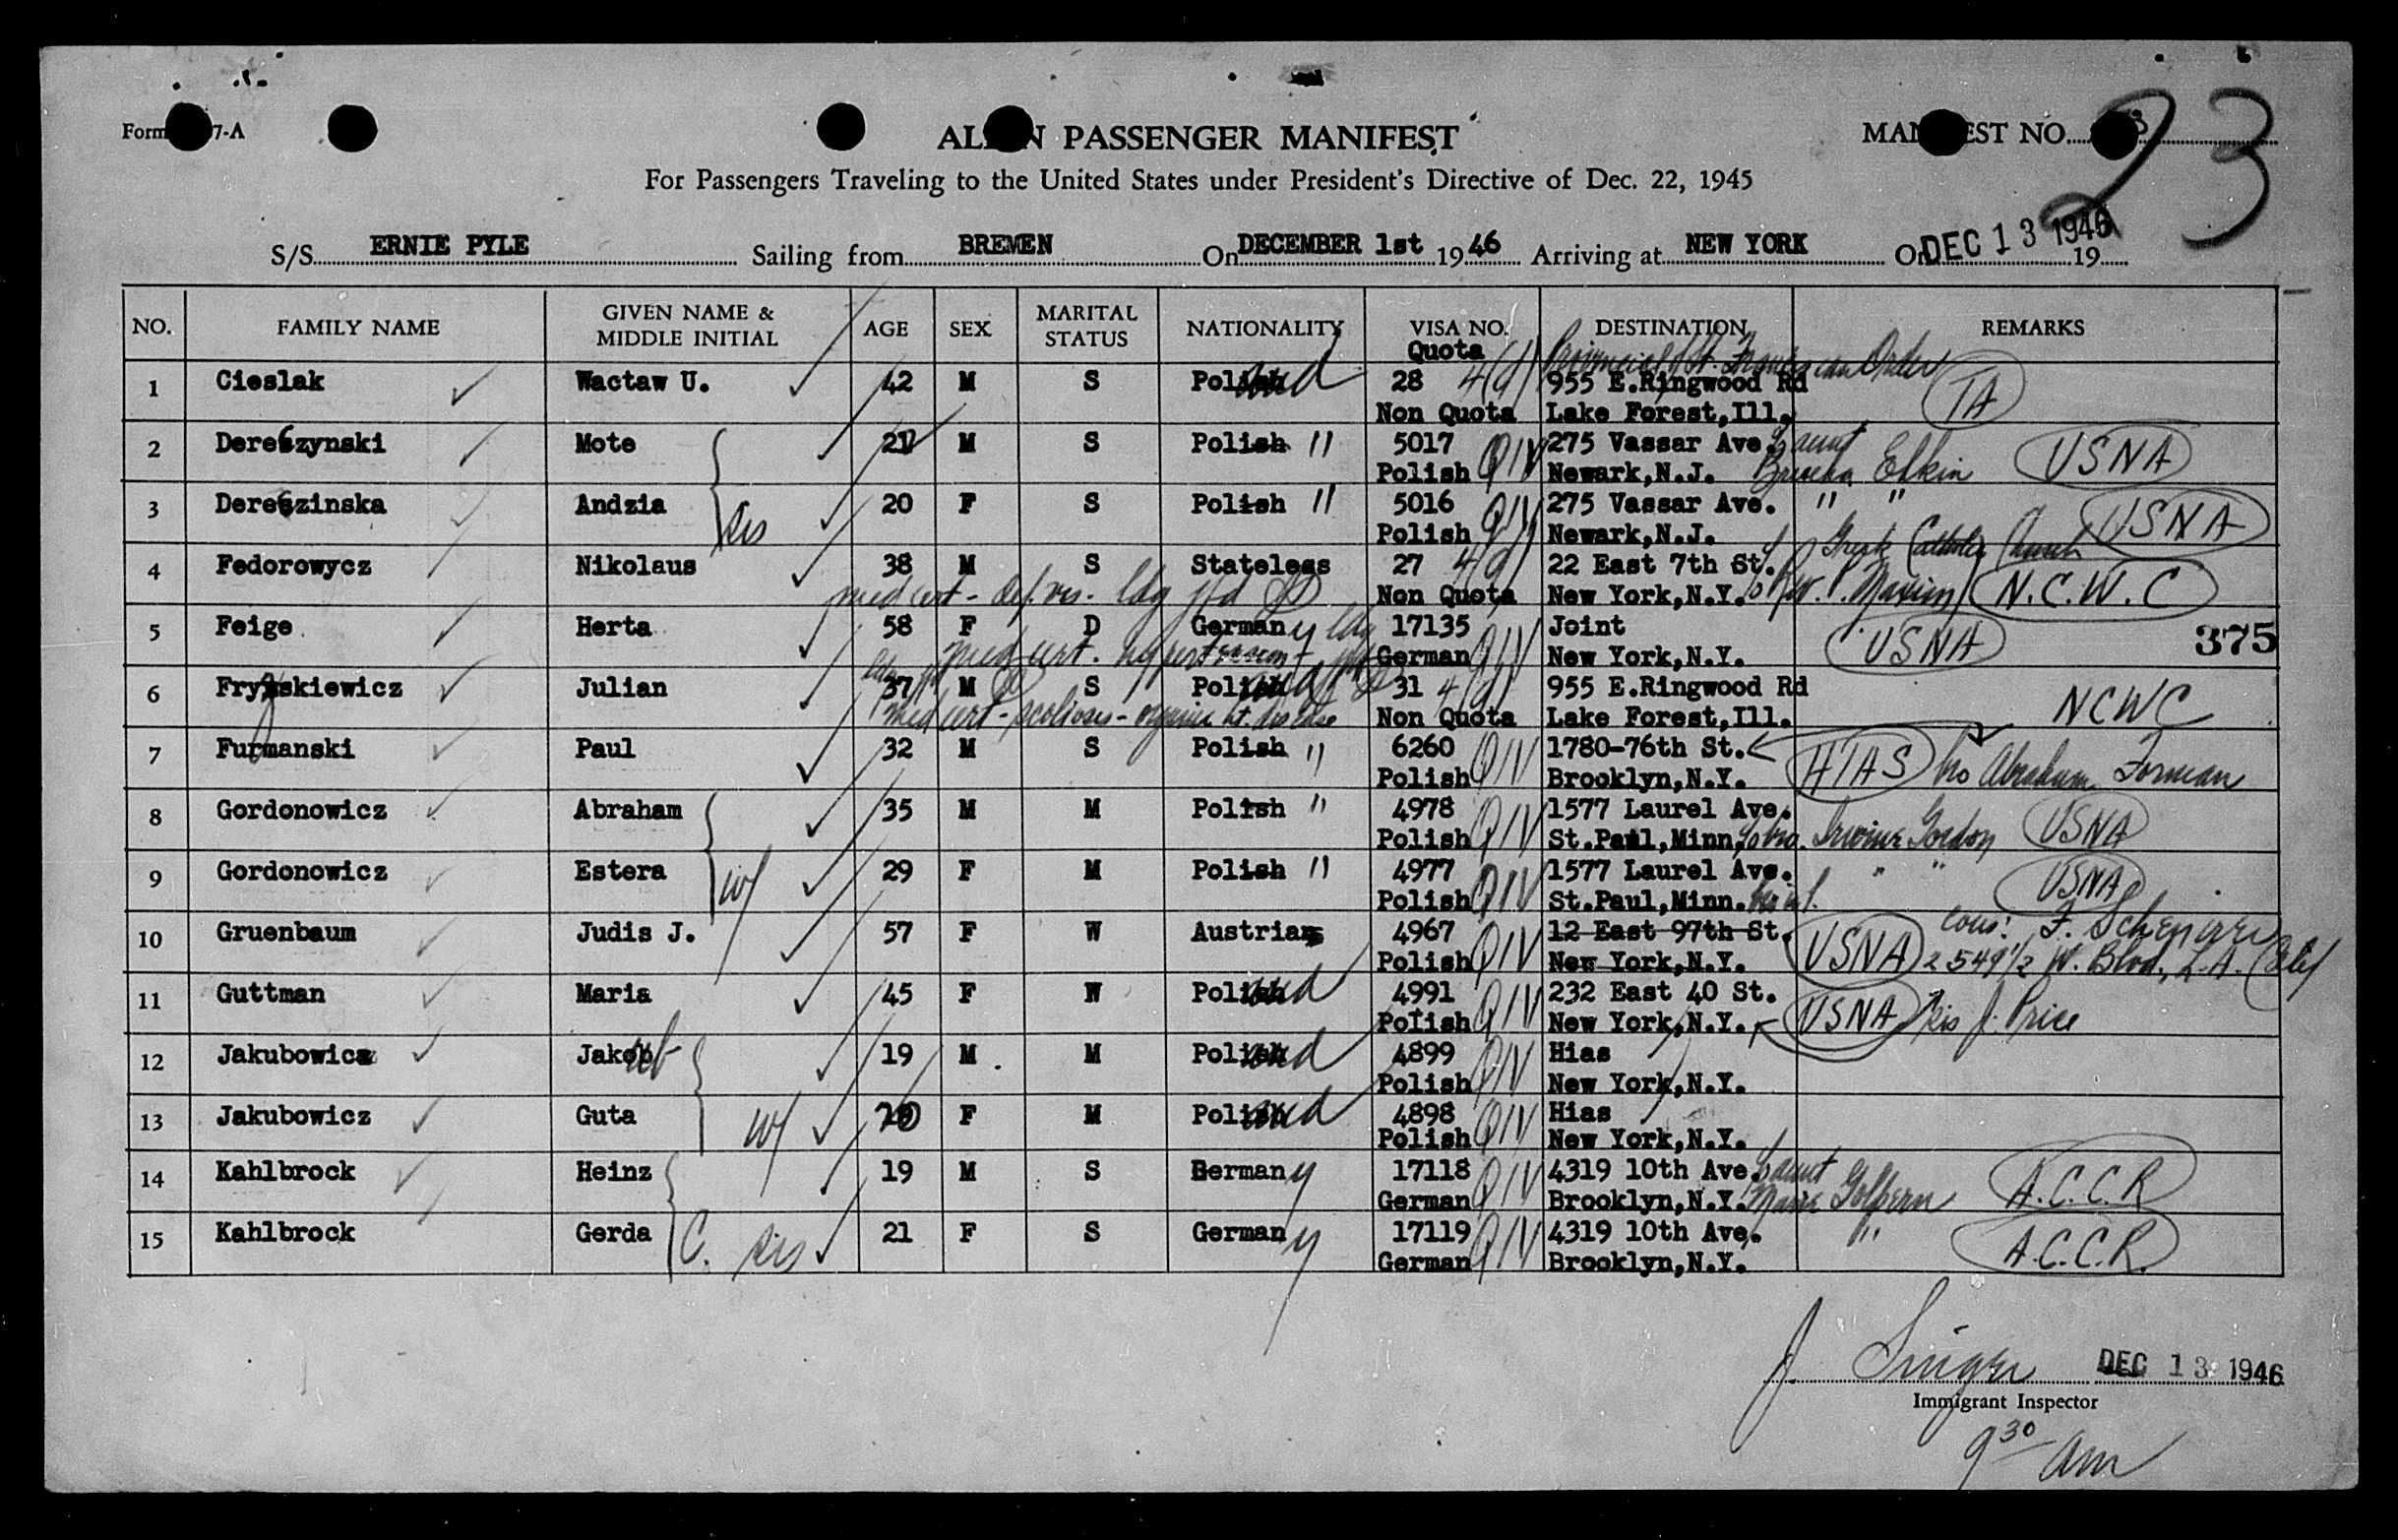 Form 7-A
ALIEN PASSENGER MANIFEST
MANIFEST NO. 23
For Passengers Traveling to the United States under President's Directive of Dec. 22, 1945
S/S ERNIE PYLE Sailing from BREMEN On DECEMBER 1st 1946 Arriving at NEW YORK On DEC 13 1946 19
NO. FAMILY NAME GIVEN NAME & MIDDLE INITIAL AGE SEX MARITAL STATUS NATIONALITY VISA NO. DESTINATION REMARKS
Quota Provincial of St. Franciscan Order
1 Cieslak Wactaw U. 42 M S Poland 28 4(d) 955 E.Ringwood Rd TA
Non Quota Lake Forest,Ill.
2 Dereszynski Mote 21 M S Polish " 5017 QIV 275 Vassar Ave. to aunt USNA
Polish Newark,N.J. Elkin
3 Dereszinska Andzia sis 20 F S Polish " 5016 QIV 275 Vassar Ave. " " USNA
Polish Newark,N.J.
4 Fedorowycz Nikolaus 38 M S Stateless 27 4(d) 22 East 7th St. Greek Catholic Church
med cert - def. vis. Non Quota New York,N.Y. to Rev. P. Maxim N.C.W.C
5 Feige Herta 58 F D Germany 17135 Joint USNA 375
med cert. hypertension German QIV New York,N.Y.
6 Fryskiewicz Julian 37 M S Poland 31 4(d) 955 E.Ringwood Rd NCWC
med cert - scoliosis - organic ht. disease Non Quota Lake Forest,Ill.
7 Furmanski Paul 32 M S Polish " 6260 QIV 1780-76th St. HIAS bro Abraham Forman
Polish Brooklyn,N.Y.
8 Gordonowicz Abraham 35 M M Polish " 4978 QIV 1577 Laurel Ave.
Polish St.Paul,Minn. to bro. Irvine Gordon USNA
9 Gordonowicz Estera w/ 29 F M Polish " 4977 QIV 1577 Laurel Ave. " " USNA
Polish St.Paul,Minn.
10 Gruenbaum Judis J. 57 F W Austria 4967 QIV 12 East 97th St. cous:
Polish New York,N.Y. USNA 2549 1/2 W. Blvd, L.A. Calif
11 Guttman Maria 45 F W Poland 4991 QIV 232 East 40 St.
Polish New York,N.Y. USNA sis J. Price
12 Jakubowicz Jakub 19 M M Poland 4899 QIV Hias
Polish New York,N.Y.
13 Jakubowicz Guta w/ 20 F M Poland 4898 QIV Hias
Polish New York,N.Y.
14 Kahlbrock Heinz 19 M S Germany 17118 QIV 4319 10th Ave. to aunt A.C.C.R
German Brooklyn,N.Y. Marie
15 Kahlbrock Gerda C. sis 21 F S Germany 17119 QIV 4319 10th Ave. " A.C.C.R.
German Brooklyn,N.Y.
J. Singer DEC 13 1946
Immigrant Inspector
9 30 am